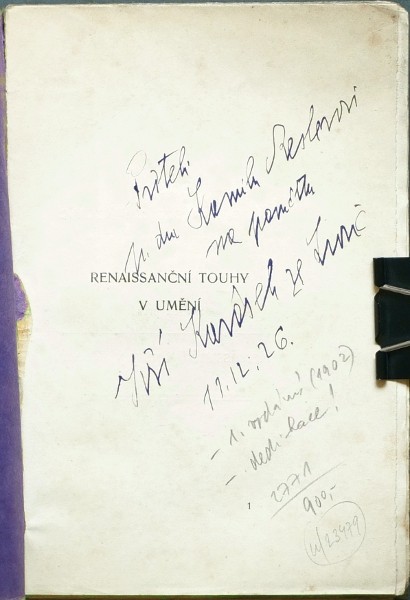 Příteli
p. dru Kamilu Reslerovi
na památku
RENAISSANČNÍ TOUHY
V UMĚNÍ
Jiří Karásek ze Lvovic
17.12.26.
- 1. vydání (1902)
- dedikace!
2771
900,-
1
23479